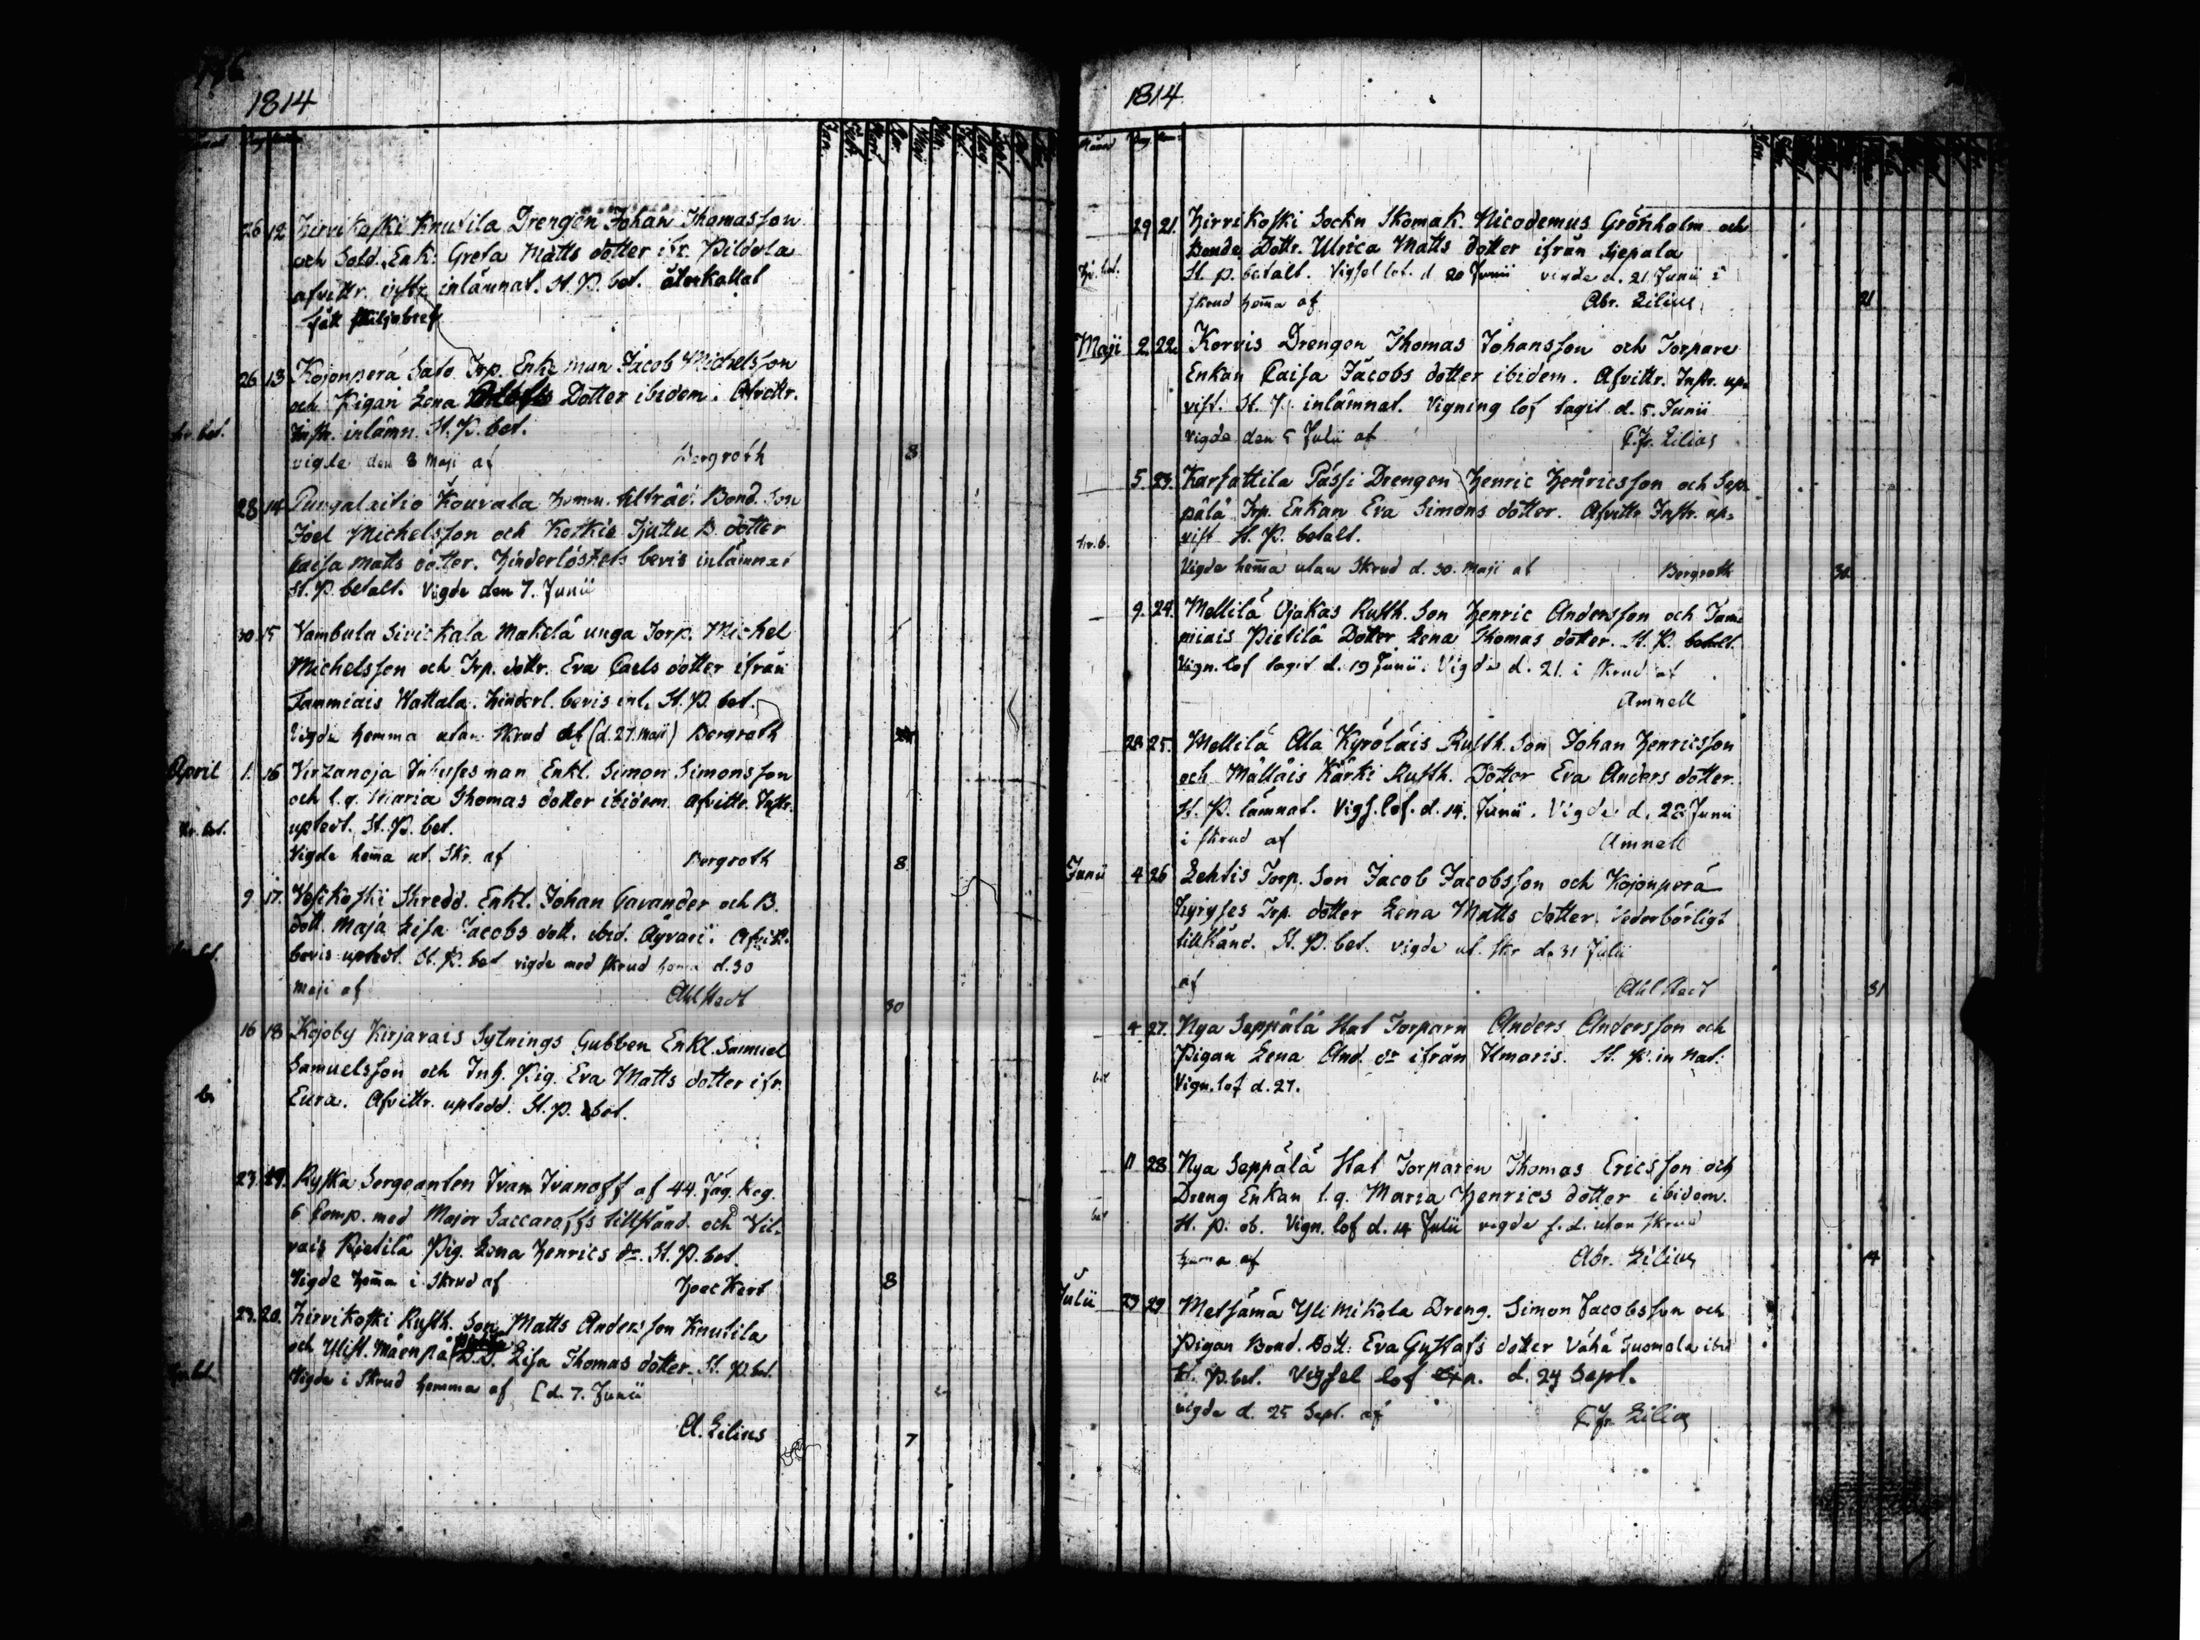 1814
26 12 Hirvikoski Knutila Drengen Johan Thomasson
och Sold. Enk: Greta Matts dotter ifr. Pildola
afvittr. instr. inlämnat. St. P. bet. återkallat
fått skiljobref
26 13 Kojonperä Salo Trp. Enkl. man Jacob Michelsson
och Pigan Lena Dotter ibidem. Afvittr.
kr. bet. Instr. inlämn. St. P. bet.
vigde den 8 Maji af Bergroth 8
28 14 Pungalaitio Kouvala Hemm. tilträd. Bond. Son
Joel Michelsson och Kotkis Tjuttu B. dotter
Caisa Matts dotter. Hinderlöshets bevis inlämnat
St. P. betalt. Vigde den 7. Junii
30 15 Vambula Sivickala Makelä unga Torp. Michel
Michelsson och Trp. dottr. Eva Carls dotter ifrån
Tammiais Wattala. Hinderl. bevis inl. St. P. bet.
Vigde hemma utan Skrud af (d. 27. Maji) Bergroth
April 1. 16 Virzanoja Enkl. Simon Simonsson
och l. q. Maria Thomas dotter ibidem. afvittr. Instr.
kr. bet. uptedt. St. P. bet.
Vigde hem̄a ut. Skr. af Bergroth 8
9 17. Vesikoski Skredd. Enkl. Johan Cavander och B.
dott. Maja Lisa Jacobs dott. ibid. Äyvari. Afvitt.
bevis uptedt. St. P. bet vigde med skrud hem̄a d. 30
Maji af Ahlstedt 30
16 18 Kojoby Kirjavais Sytnings Gubben Enkl. Samuel
Samuelsson och Inh. Pig. Eva Matts dotter ifr.
Eura. Afvittr. uptedd. St. P. bet.
23. 19. Ryska Sergeanten Ivan Ivanoff af 44. Jäg. Reg.
6 Comp. med Major Saccaroffs tillstånd och Vil-
vais Pietilä Pig. Lena Henrics dr. St. P. bet.
Vigde hem̄a i Skrud af Hoeckert 8
23. 20. Hirvikoski Rusth. Son Matts Andersson Knutila
och Ylist. Mäenpä D. D. Lisa Thomas dotter. St. P. bet.
kr. bet. Vigde i Skrud hemma af [d. 7. Junii
A. Lilius 7
1814
29 21. Hirvikoski Sockn Skomak. Nicodemus Grönholm och
Bonde Dottr. Ulrica Matts dotter ifrån Sjepala
kr. bet. St. P. betalt. Vigsel lof. d 20 Junii vigde d. 21 Junii i
skrud hem̄a af Abr. Lilius 21
Maji 2. 22. Korvis Drengen Thomas Johansson och Torpare
Enkan Caisa Jacobs dotter ibidem. Afvittr. Instr. up-
vist. St. P. inlämnat. Vigning lof tagit d. 5. Junii
vigde den 5 Julii af C. Fr. Lilius
5. 23. Karhattila Pässi Drengen Henric Henricsson och Sep-
pälä Trp. Enkan Eva Simons dotter. Afvittr. Instr. up-
kr. b. vist St. P. betalt.
Vigde hem̄a utan Skrud d. 30. Maji af Bergroth 30
9. 24. Mellilä Ojakas Rusth. Son Henric Andersson och Tam-
miais Pietilä Dotter Lena Thomas dotter. St. P. betalt.
Vign. lof tagit d. 19 Junii. Vigde d. 21. i skrud af
Amnell
28 25. Mellilä Ala Kyröläis Rusth. Son Johan Henricsson
och Mälläis Kärki Rusth. Dotter Eva Anders dotter.
St. P. lämnat. Vigs. lof. d. 14. Junii. Vigde d. 28 Junii
i skrud af Amnell
Junii 4 26 Lehtis Torp. Son Jacob Jacobsson och Kojonperä
Trp. dotter Lena Matts dotter. vederbörligt
tillkänd. St. P. bet. vigde ut. skr d. 31 Julii
af Ahlstedt 31
4 27. Nya Seppälä Hat Torparn Anders Andersson och
Pigan Lena And. dr ifrån Ilmaris. St. P.
bet Vign. lof d. 27.
11 28. Nya Seppälä Hat Torparen Thomas Ericsson och
Dreng Enkan l. q. Maria Henrics dotter ibidem.
bet St. P. ob. Vign. lof d. 14 Julii vigde s. d. utan skrud
hem̄a af Abr. Lilius 14
Julii 23 29 Metsämä Yli Mikola Dreng. Simon Jacobsson och
Pigan Bond. Dott: Eva Gustafs dotter Vähä Tuomola ibid
St. P. bet. Vigsel lof d. 24 Sept.
vigde d. 25 Sept. af C. Fr. Lilius